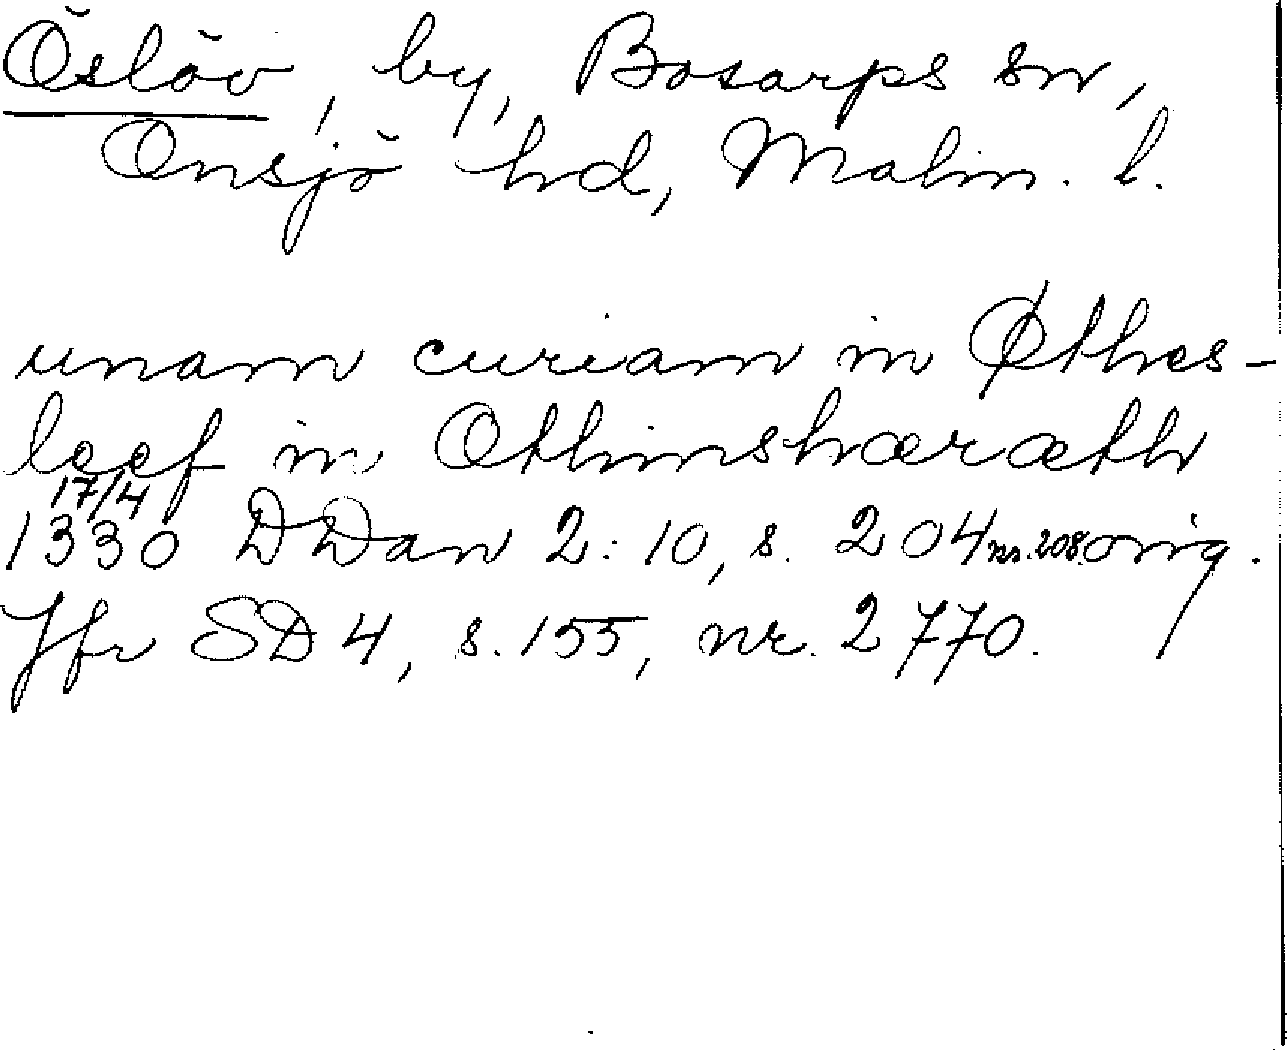 Öslöv, by, Bosarps sn,
Onsjö hd, Malm. l.
unam curiam in Øthes-
leef in Othinshæræth
17/4
1330 DDan 2:10, s. 204 nr. 208 orig.
Jfr SD 4, s. 155, nr. 2770.